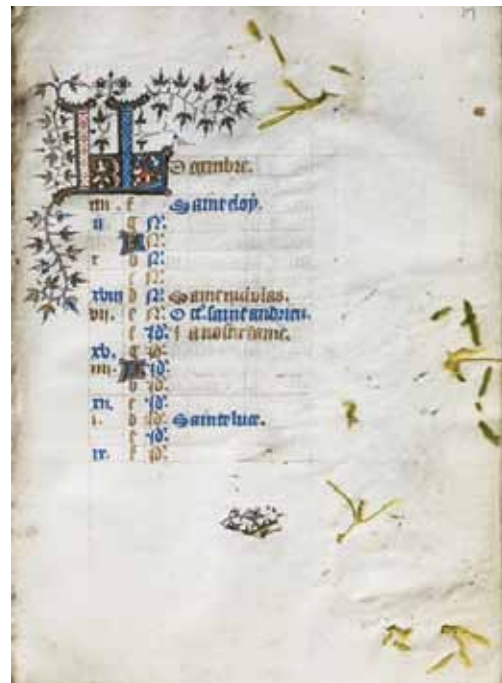 KL Decembre.
xiii . f Saint eloy.
ii g N.
A N.
x b N.
c N.
xviii d N. Saint nicolas.
vii. e N. Oct. saint andrieu.
f Id. la nostre dame.
xv. g Id.
iiii. A Id.
b Id.
xii. c Id.
i. d Id. Sainte luce.
e Id.
ix. f Id.